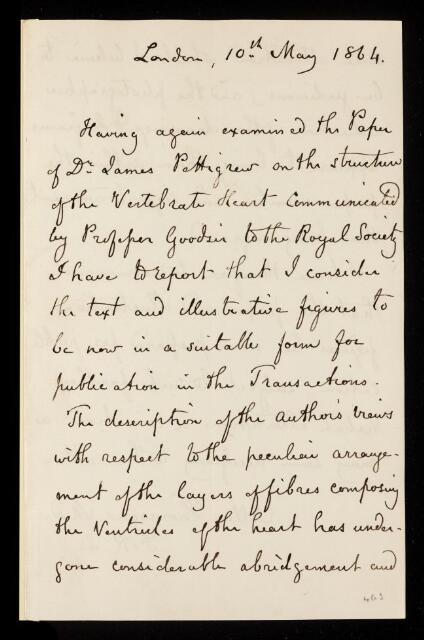 London, 10th May 1864.
Having again examined the Paper
of Dr. James Pettigrew on the structure
of the Vertebrate Heart Communicated
by Professor Goodsir to the Royal Society
I have to report that I consider
the text and illustrative figures to
be now in a suitable form for
publication in the Transactions.
The description of the author's views
with respect to the peculiar arrange-
ment of the layers of fibres composing
the Ventricles of the heart has under-
gone considerable abridgement and
463